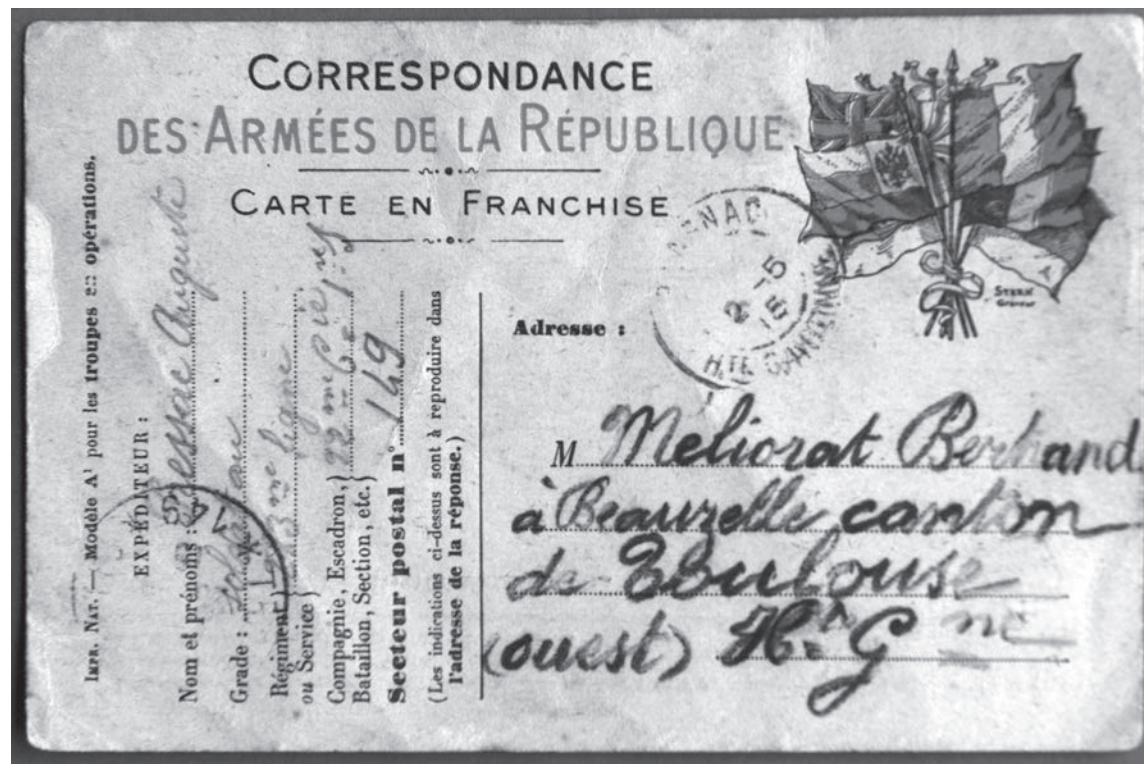 CORRESPONDANCE
DES ARMÉES DE LA RÉPUBLIQUE
CARTE EN FRANCHISE
Impr. Nat. — Modèle A¹ pour les troupes en opérations.
EXPÉDITEUR :
Nom et prénoms : Auguste
Grade :
Régiment } ligne
ou Service }
Compagnie, Escadron, } 22me Cie
Bataillon, Section, etc. }
Secteur postal n° 149
(Les indications ci-dessus sont à reproduire dans
l'adresse de la réponse.)
STERN
Graveur
HTE GARONNE
Adresse :
M Meliorat Bertrand
à Beauzelle canton
de Toulouse
(ouest) Hte G ne